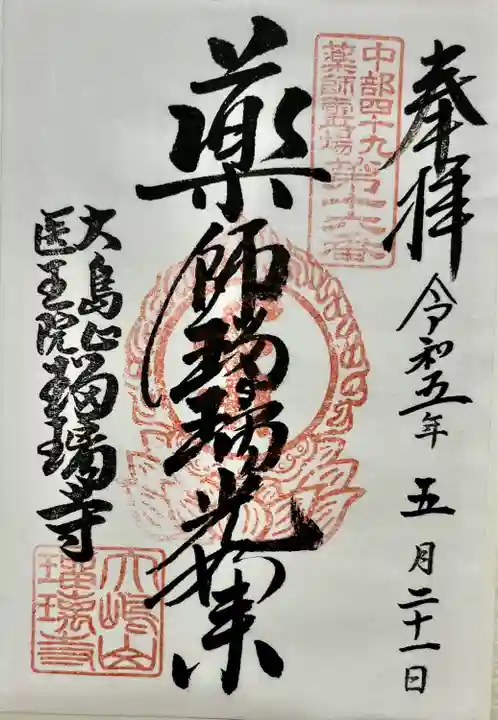 奉拝
令和五年五月二十一日
中部四十九
薬師霊場第十六番
薬師瑠璃光如来
大島山
医王院瑠璃寺
大嶋山
瑠璃寺